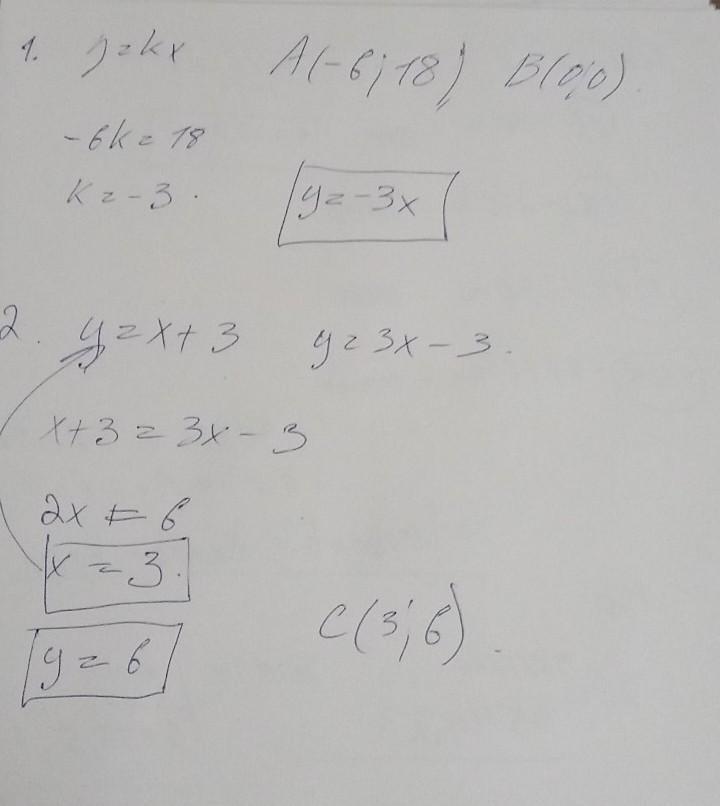 1. y=kx A(-6;18) B(0;0).
-6k=18
k=-3. y=-3x
2. y=x+3 y=3x-3.
x+3=3x-3
2x=6
x=3.
y=6 C(3;6).